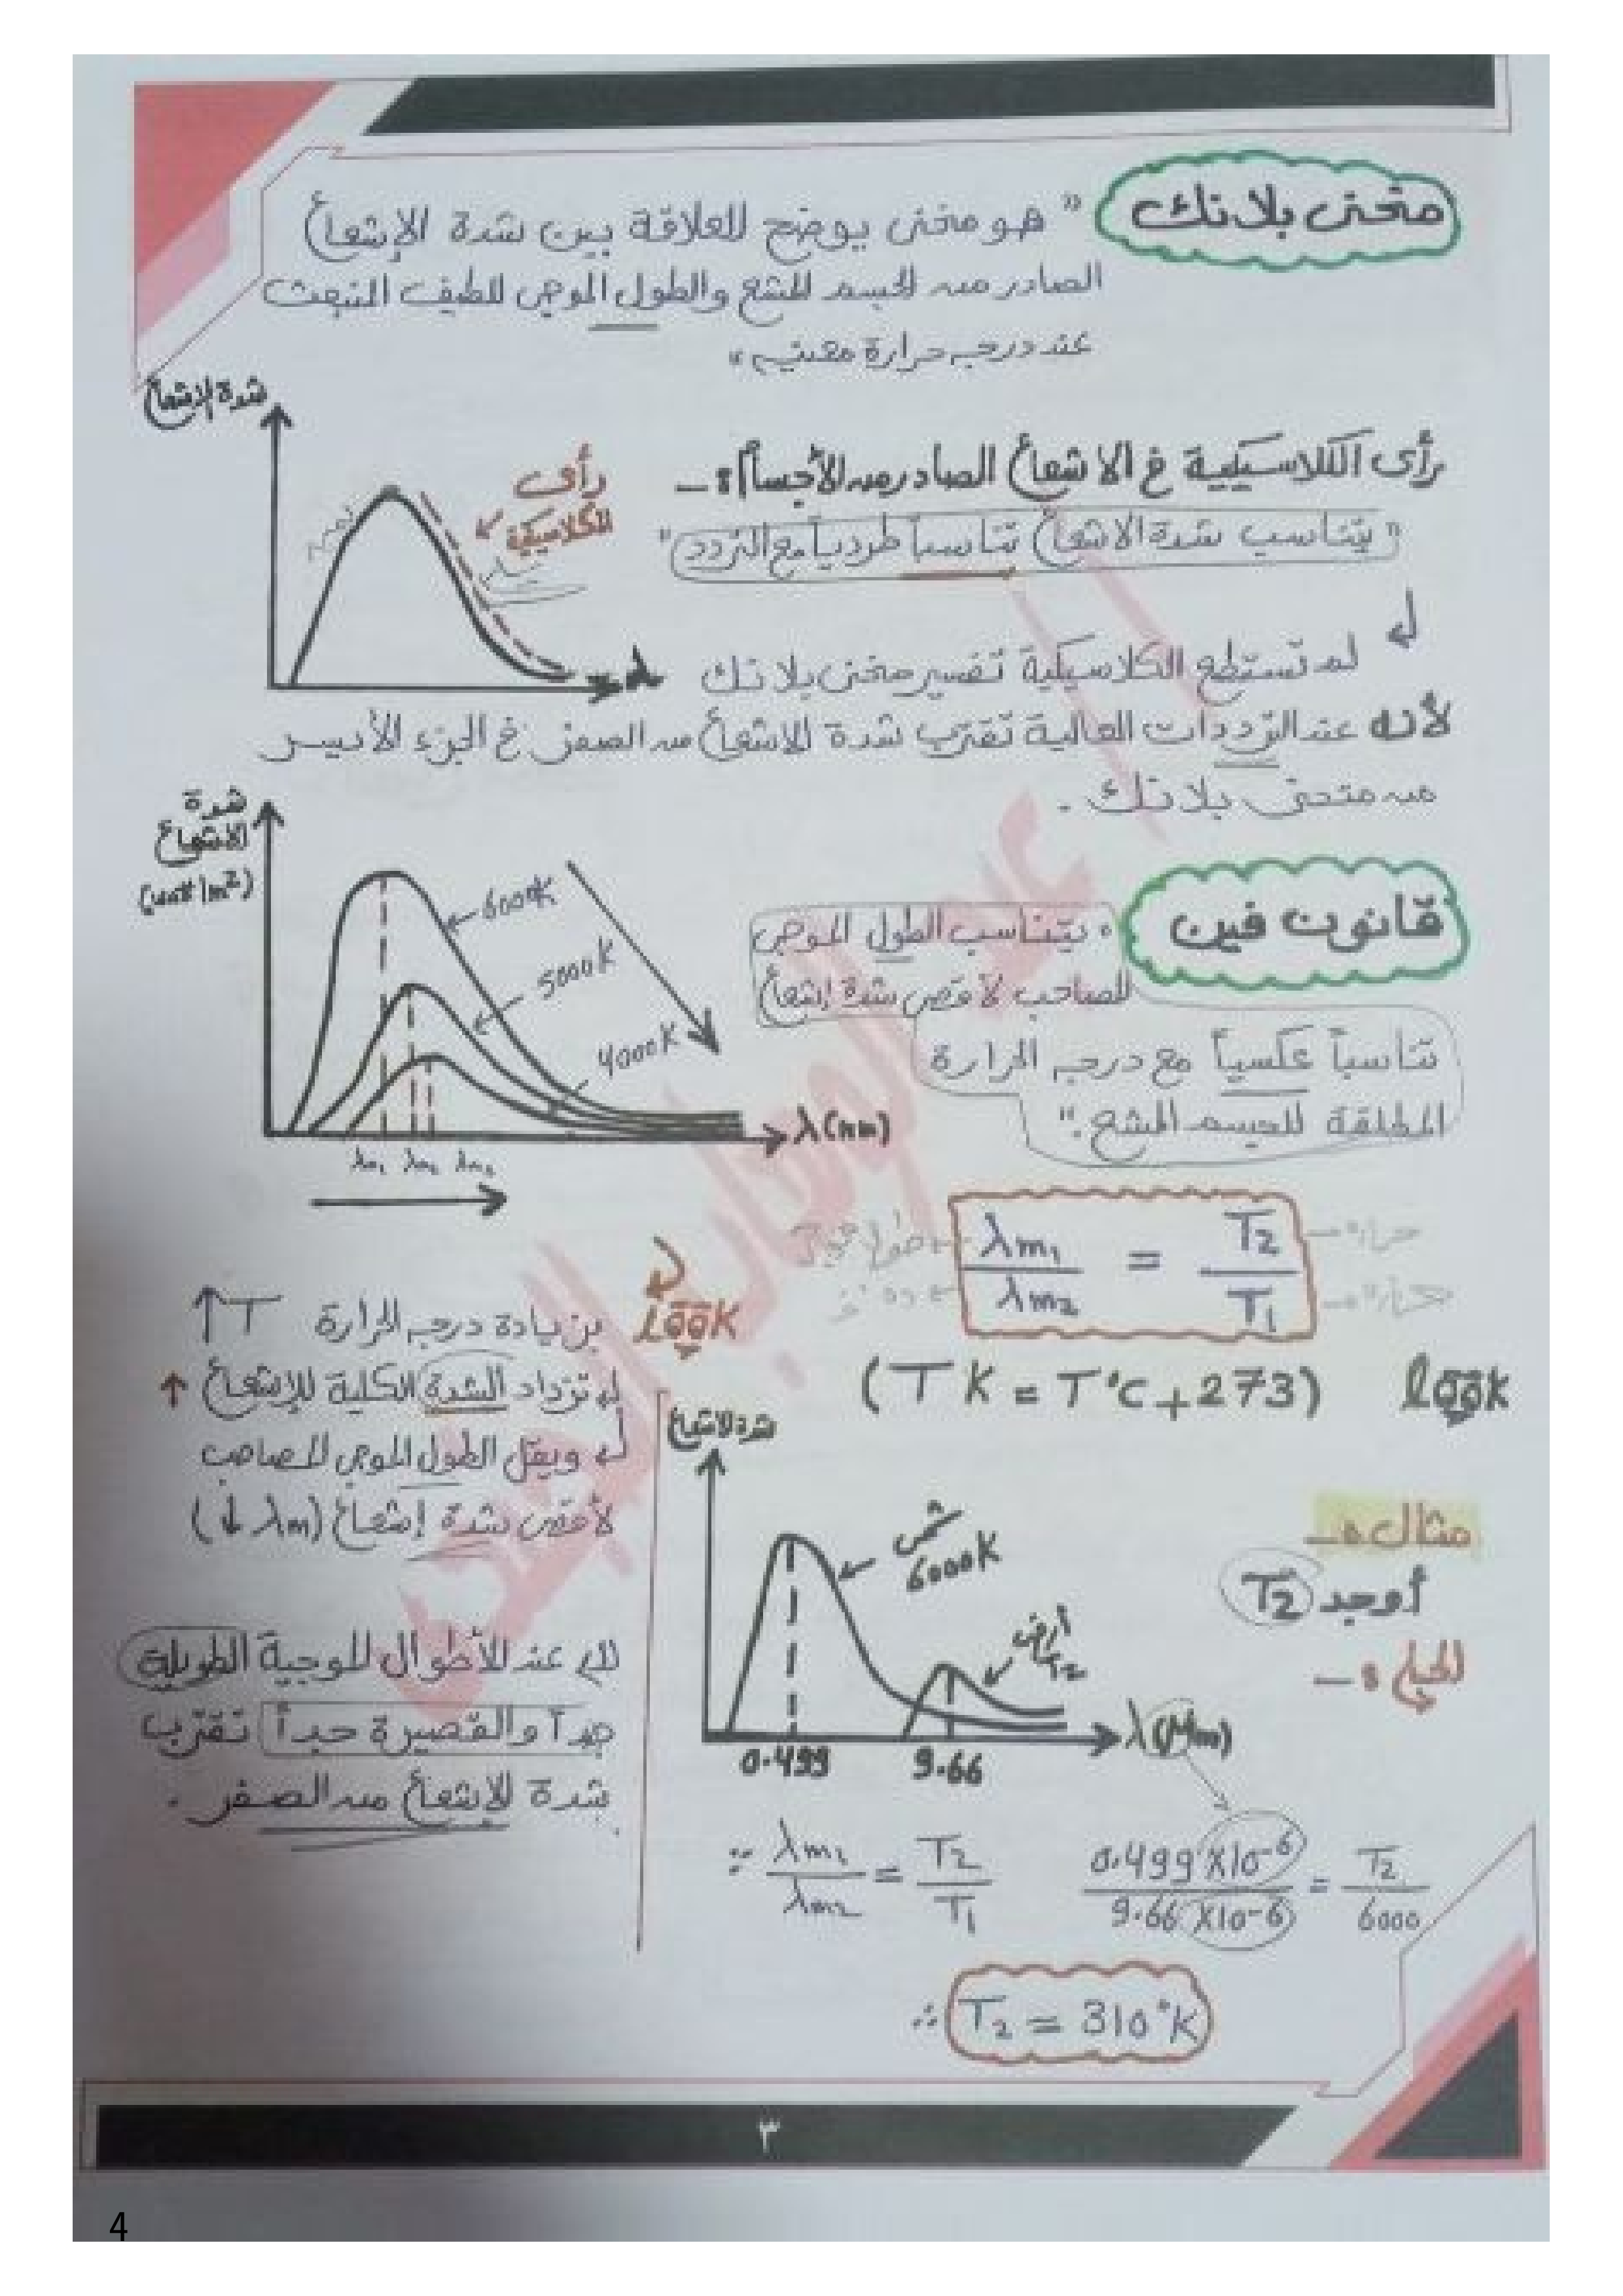 منحنى بلانك
" هو منحنى يوضح العلاقة بين شدة الإشعاع
الصادر من الجسم المشع والطول الموجي للطيف المنبعث
عند درجه حرارة معينه "
شدة الإشعاع
رأى الكلاسيكية
λ
رأى الكلاسيكية في الاشعاع الصادر من الأجسام :-
" يتناسب شدة الاشعاع تناسباً طردياً مع التردد "
لم تستطع الكلاسيكية تفسير منحنى بلانك
لأنه عند الترددات العالية تقترب شدة الاشعاع من الصفر في الجزء الأيسر
من منحنى بلانك .
شدة
الاشعاع
(watt/m²)
6000K
5000K
4000K
λ(nm)
λm₁ λm₂ λm₃
قانون فين
" يتناسب الطول الموجي
المصاحب لأقصى شدة إشعاع
تناسباً عكسياً مع درجه الحرارة
المطلقة للجسم المشع . "
λm₁ / λm₂ = T₂ / T₁
حرارة
حرارة
(T K = T°C + 273) look
look
بزيادة درجه الحرارة T ↑
تزداد الشدة الكلية للإشعاع ↑
ويقل الطول الموجي المصاحب
لأقصى شدة إشعاع (λm ↓)
عند الأطوال الموجية الطويلة
جداً والقصيرة جداً تقترب
شدة الإشعاع من الصفر .
شدة الاشعاع
شمس
6000K
أرض
T₂
λ(μm)
0.499 9.66
مثال :-
أوجد T₂
الحل :-
∵ λm₁ / λm₂ = T₂ / T₁ 0.499 x10⁻⁶ / 9.66 x10⁻⁶ = T₂ / 6000
∴ T₂ = 310°K
٣
4